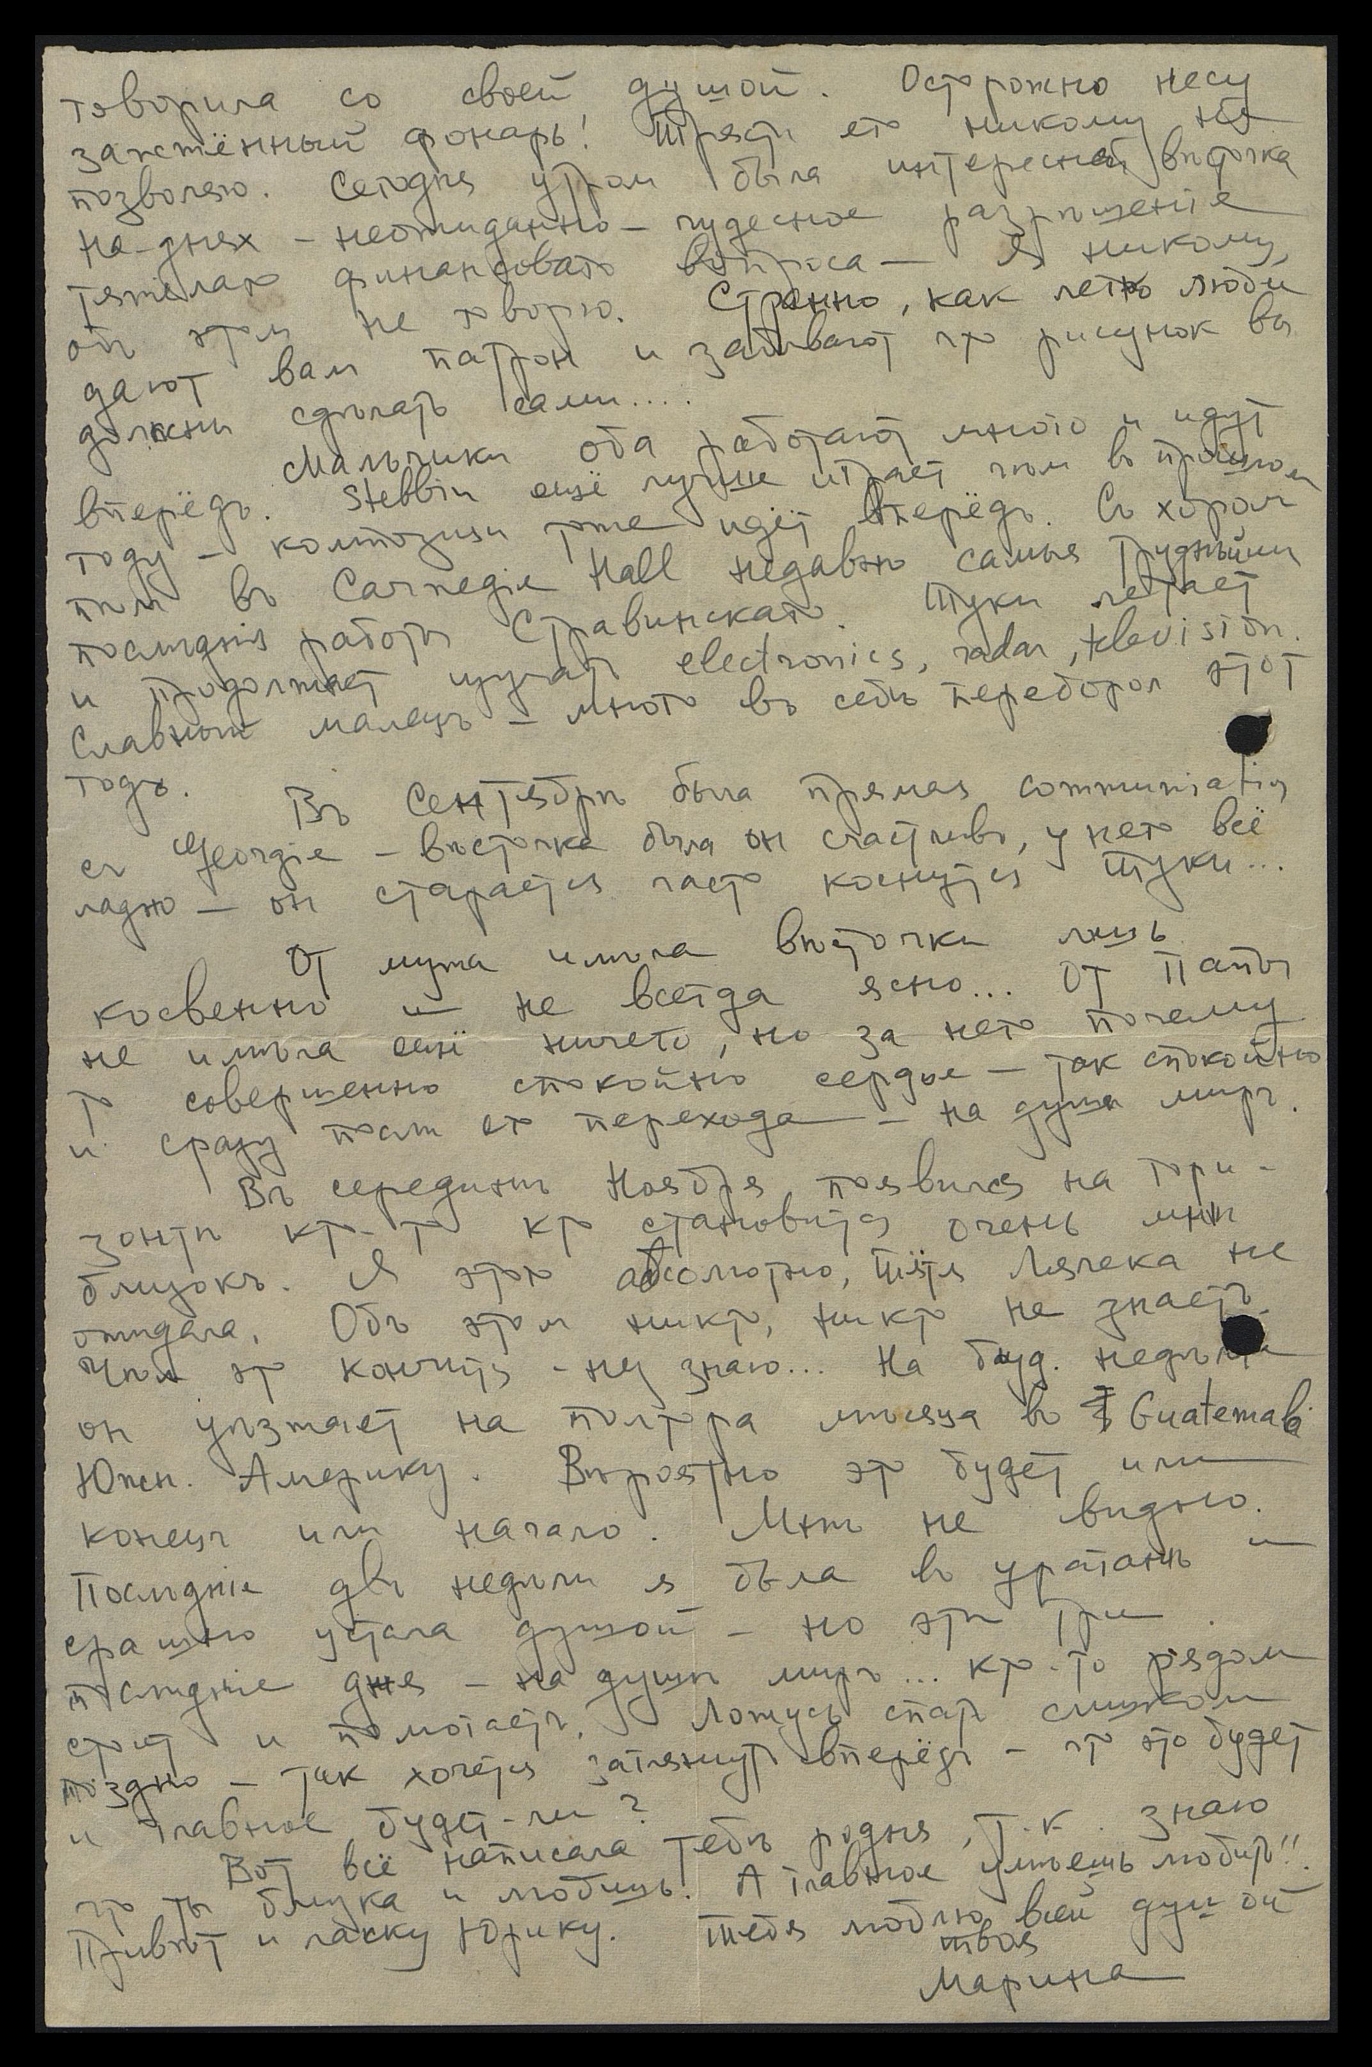 говорила со своей душой. Осторожно несу
зажжённый фонарь! Трясти его никому не
позволяю. Сегодня утром была интересная вѣсточка
на-днях – неожиданно – чудесное разрѣшенiе
тяжёлаго финансоваго вопроса — я никому
объ этом не говорю. Странно, как легко люди
дают вам патрон и забывают что рисунок вы
должны сдѣлать сами....
Мальчики оба работают много и идут
впередъ. Stebbin ещё лучше играет чѣм въ прошлом
году – композиции тоже идёт вперёдъ. Съ хором
пѣл въ Carnegie Hall недавно самыя трудныя
послѣднiя работы Стравинскаго. Туки летает
и продолжает изучать electronics, radar, television.
Славный малецъ – много въ себѣ переборол этот
годъ.
Въ Сентябрѣ была прямая communication
съ Georgie – вѣсточка была он счастливъ, у него всё
ладно — он старается часто коснуться Туки...
От мужа имѣла вѣсточки лишь
косвенно и не всегда ясно... От Папы
не имѣла ещё ничего, но за него почему
то совершенно спокойно сердце – так спокойно
и сразу послѣ его перехода – на душѣ миръ.
Въ серединѣ Ноября появился на гори-
зонтѣ кто-то кто становится очень мнѣ
близокъ. Я этого абсолютно, тётя Лялека не
ожидала. Объ этом никто, никто не знаетъ.
Чѣм это кончится – не знаю... На буд. недѣлѣ
он уѣзжает на полтора мѣсяца въ Guatemala
Южн. Америку. Вѣроятно это будет или
конецъ или начало. Мнѣ не видно.
Послѣднiе двѣ недѣли я была въ ураганѣ и
страшно устала душой – но эти три
послѣднiе дня – на душѣ миръ... кто-то рядом
стоит и помогаетъ. Ложусь спать слишком
поздно – так хочется заглянуть вперёдъ – что это будет
и главное будет-ли?
Вот всё написала тебѣ родная, т.к. знаю
что ты близка и любишь. А главное умѣешь любить!!
Привѣт и ласку Юрику. Тебя люблю всей душой
твоя
Марина